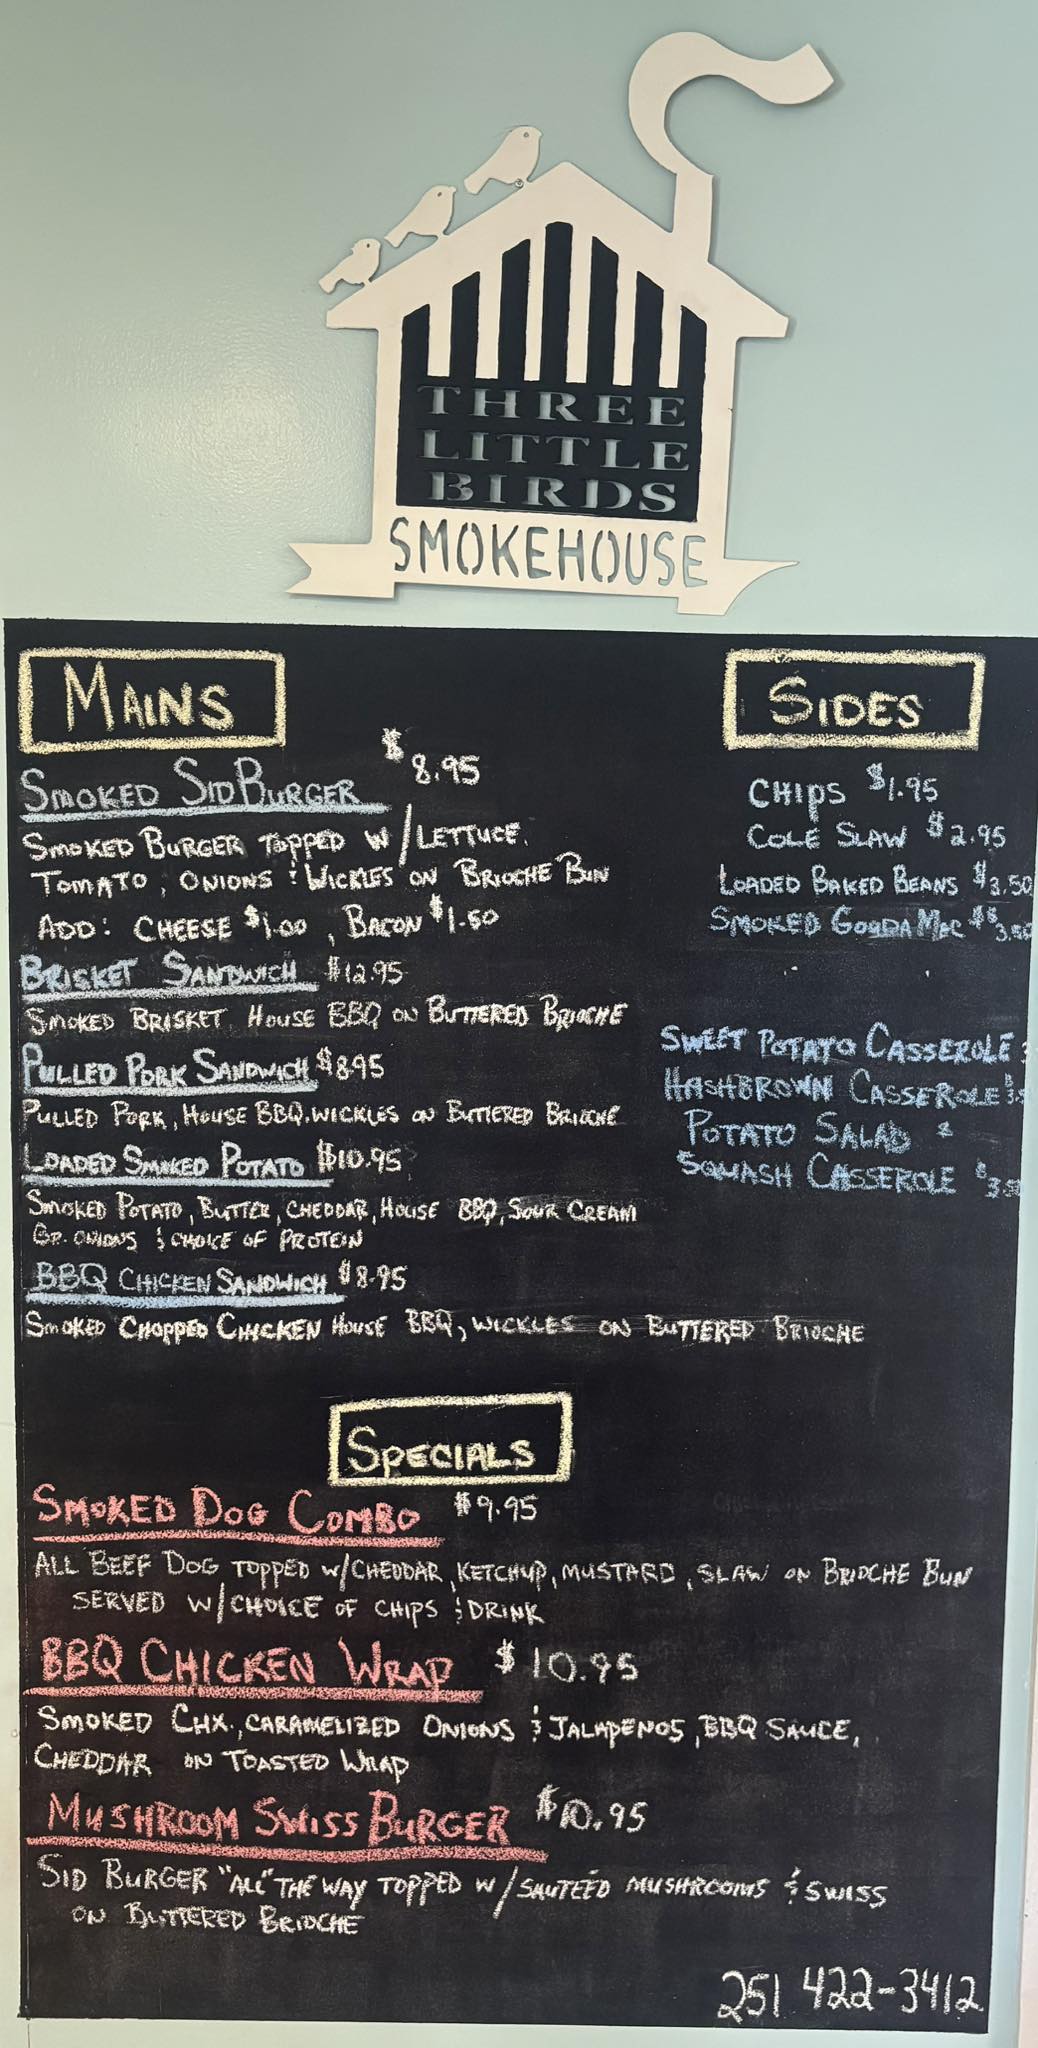 THREE
LITTLE
BIRDS
SMOKEHOUSE
MAINS
SMOKED SIDBURGER $8.95
SMOKED BURGER TOPPED W/LETTUCE,
TOMATO, ONIONS & WICKLES ON BRIOCHE BUN
ADD: CHEESE $1.00, BACON $1.50
BRISKET SANDWICH $12.95
SMOKED BRISKET HOUSE BBQ ON BUTTERED BRIOCHE
PULLED PORK SANDWICH $8.95
PULLED PORK, HOUSE BBQ, WICKLES ON BUTTERED BRIOCHE
LOADED SMOKED POTATO $10.95
SMOKED POTATO, BUTTER, CHEDDAR, HOUSE BBQ, SOUR CREAM
GR. ONIONS & CHOICE OF PROTEIN
BBQ CHICKEN SANDWICH $8.95
SMOKED CHOPPED CHICKEN HOUSE BBQ, WICKLES ON BUTTERED BRIOCHE
SIDES
CHIPS $1.95
COLE SLAW $2.95
LOADED BAKED BEANS $3.50
SMOKED GOUDA MAC $3.50
SWEET POTATO CASSEROLE
HASHBROWN CASSEROLE
POTATO SALAD $
SQUASH CASSEROLE $3.50
SPECIALS
SMOKED DOG COMBO $9.95
ALL BEEF DOG TOPPED W/CHEDDAR, KETCHUP, MUSTARD, SLAW ON BRIOCHE BUN
SERVED W/CHOICE OF CHIPS & DRINK
BBQ CHICKEN WRAP $10.95
SMOKED CHX., CARAMELIZED ONIONS & JALAPENOS, BBQ SAUCE,
CHEDDAR ON TOASTED WRAP
MUSHROOM SWISS BURGER $10.95
SID BURGER "ALL" THE WAY TOPPED W/SAUTEED MUSHROOMS & SWISS
ON BUTTERED BRIOCHE
251 422-3412